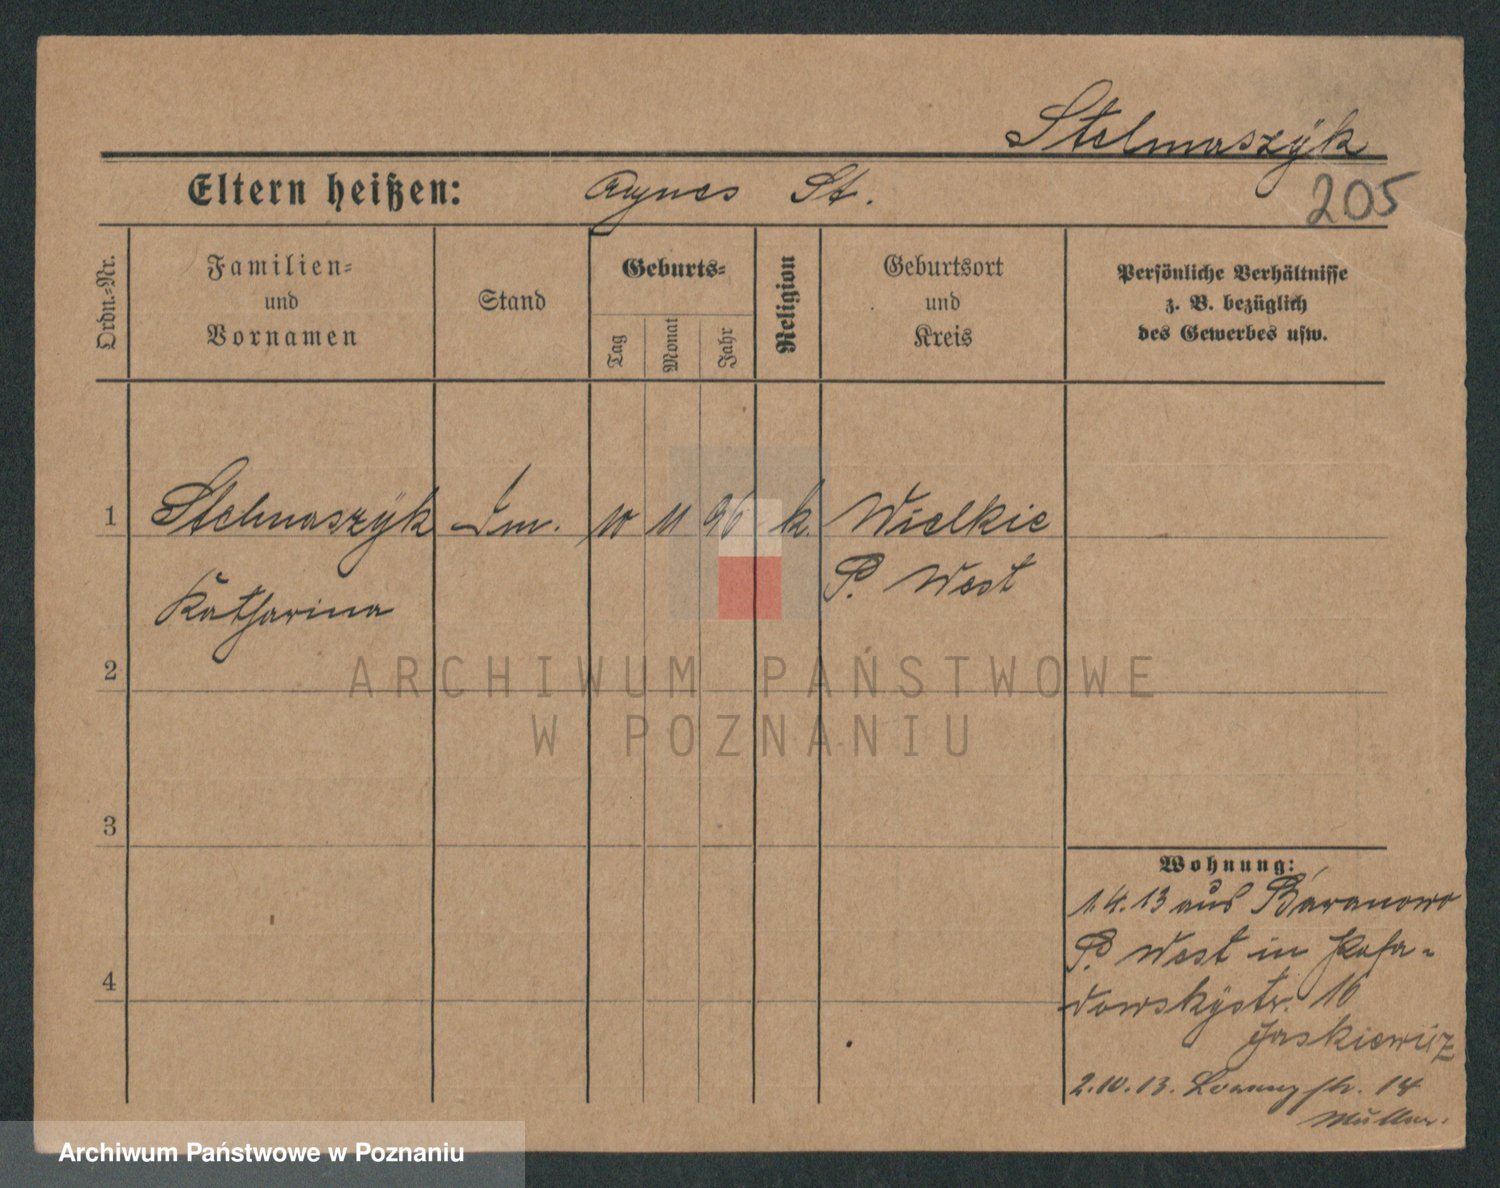 Stelmaszÿk
Eltern heißen: Agnes St.
205
Ordn.-Nr.
Familien-
und
Vornamen
Stand
Geburts-
Tag
Monat
Jahr
Religion
Geburtsort
und
Kreis
Persönliche Verhältnisse
z. B. bezüglich
des Gewerbes usw.
1 Stelmaszÿk 10 11 96 k. Wielkie
P. West
Katharina
2
ARCHIWUM PAŃSTWOWE
W POZNANIU
3
Wohnung:
1.4.13 aus Baranowo
P. West in
dowskÿstr. 16
Jaskiewicz
4
2.10.13. str. 14
Müller.
Archiwum Państwowe w Poznaniu